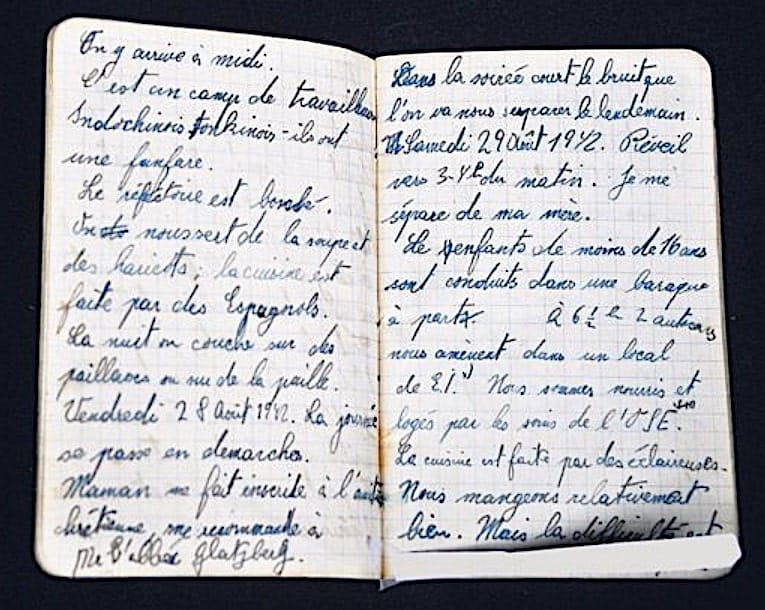 On y arrive à midi.
C'est un camp de travailleurs
Indochinois Tonkinois - ils ont
une fanfare.
Le réfectoire est bondé.
On nous sert de la soupe et
des haricots, la cuisine est
faite par des Espagnols.
La nuit on couche sur des
paillasses ou sur de la paille.
Vendredi 28 Août 1942. La journée
se passe en démarches.
Maman me fait inscrire à l'amitié
chrétienne, me recommande à
Mr l'abbé Glatzberg.
Dans la soirée court le bruit que
l'on va nous séparer le lendemain.
Samedi 29 Août 1942. Réveil
vers 3-4h du matin. Je me
sépare de ma mère.
Le enfants de moins de 16 ans
sont conduits dans une baraque
à part. à 6 ½ h 2 autocars
nous amènent dans un local
de E.I. Nous sommes nourris et
logés par les soins de l'OSE.
La cuisine est faite par des éclaireuses.
Nous mangeons relativement
bien. Mais la difficulté est